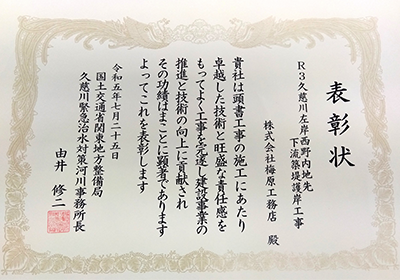 表彰状
R3久慈川左岸西野内地先
下流築堤護岸工事
株式会社梅原工務店 殿
貴社は頭書工事の施工にあたり
卓越した技術と旺盛な責任感を
もってよく工事を完遂し建設事業の
推進と技術の向上に貢献され
その功績はまことに顕著であります
よってこれを表彰します
令和五年七月二十五日
国土交通省関東地方整備局
久慈川緊急治水対策河川事務所長
由井 修二